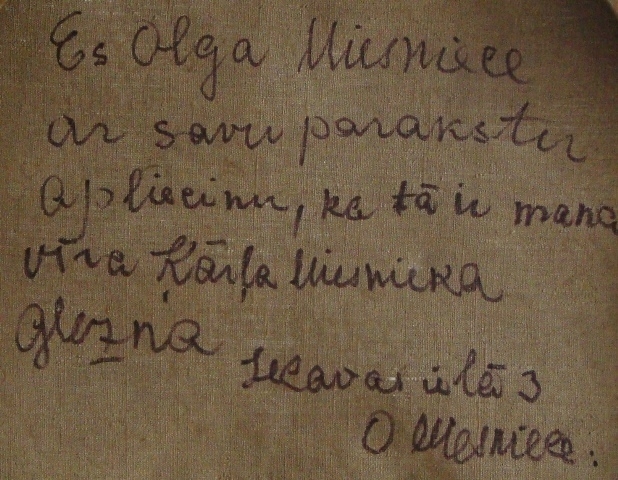 Es Olga Miesniece
ar savu parakstu
apliecinu, ka tā ir mana
vīra Kārļa Miesnieka
glezna
Iecavas ielā 3
O Miesniece.